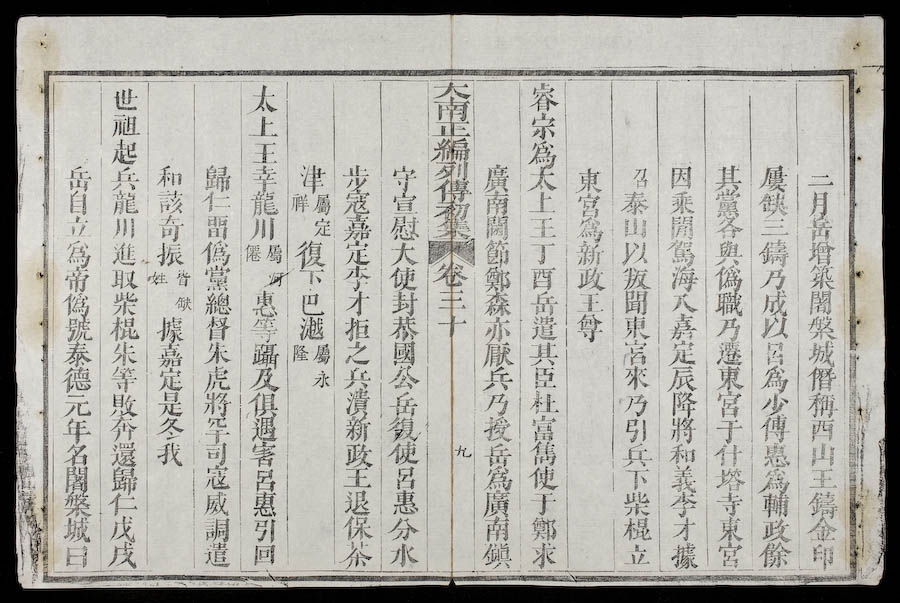 二月岳增築闍槃城僭稱西山王鑄金印
屢缺三鑄乃成以呂爲少傅惠爲輔政餘
其黨各與僞職乃遷東宮于什塔寺東宮
因乘閒駕海入嘉定辰降將和義李才據
召泰山以叛聞東宮來乃引兵下柴棍立
東宮爲新政王尊
睿宗爲太上王丁酉岳遣其臣杜富雋使于鄭求
廣南閫節鄭森亦厭兵乃授岳爲廣南鎭
大南正編列傳初集 卷三十 九
守宣慰大使封恭國公岳復使呂惠分水
步寇嘉定李才拒之兵潰新政王退保茶
津屬定祥復下巴𣾼屬永隆
太上王幸龍川屬河僊惠等躡及俱遇害呂惠引回
歸仁畱僞黨總督朱虎將罕司寇威調遣
和該奇振皆缺姓據嘉定是冬我
世祖起兵龍川進取柴棍朱等敗奔還歸仁戊戌
岳自立爲帝僞號泰德元年名闍槃城曰